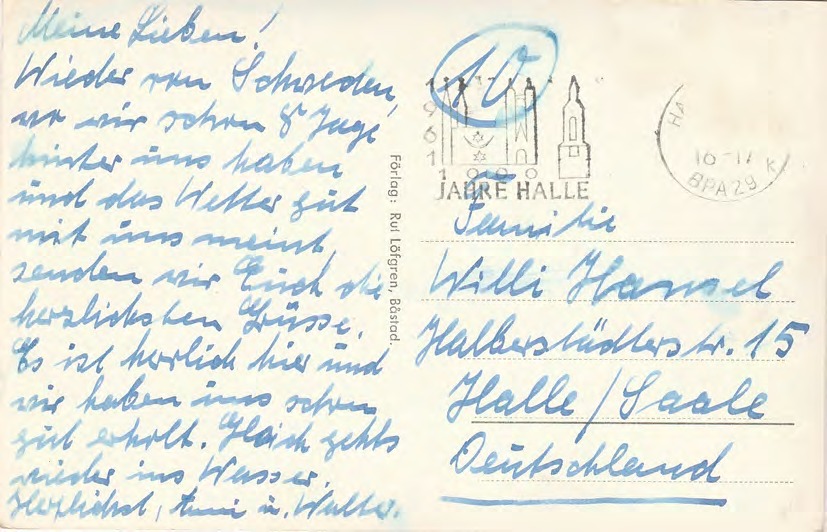 Meine Lieben!
Wieder von Schweden,
wo wir schon 8 Tage
hinter uns haben
und das Wetter gut
mit uns meint,
senden wir Euch die
herzlichsten Grüsse.
Es ist herrlich hier und
wir haben uns schon
gut erholt. Gleich gehts
wieder ins Wasser.
Herzlichst, u. Walter.
Förlag: Rul Löfgren, Båstad.
10
1961
1000
JAHRE HALLE
HA
16-17 K
BPA29
Familie
Willi Hansel
Halberstädterstr. 15
Halle/Saale
Deutschland